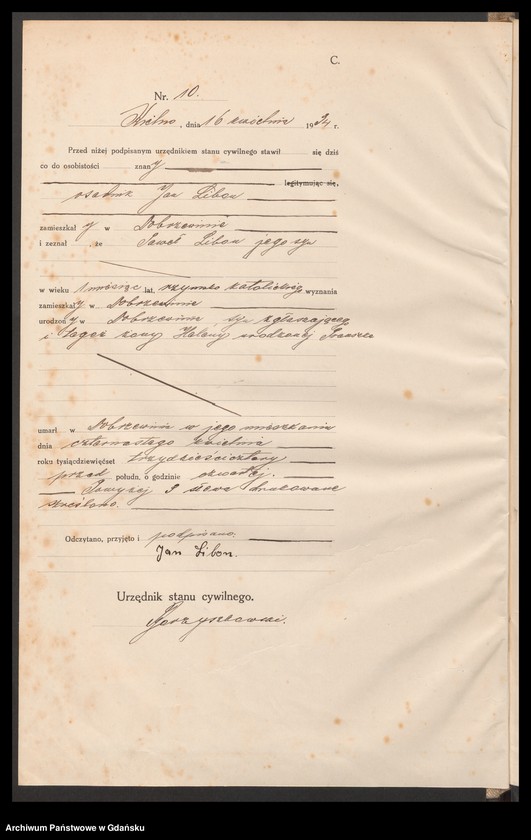 C.
Nr. 10.
Kielno, dnia 16 kwietnia 1934 r.
Przed niżej podpisanym urzędnikiem stanu cywilnego stawił się dziś
co do osobistości znany
legitymując się,
osadnik Jan Libon
zamieszkały w Dobrzewinie
i zeznał, że Paweł Libon jego syn
w wieku 1 miesiąc lat, rzymsko katolickiego wyznania
zamieszkały w Dobrzewinie
urodzony w Dobrzewinie syn zgłaszającego
i tegoż żony Heleny urodzonej
umarł w Dobrzewinie w jego mieszkaniu
dnia czternastego kwietnia
roku tysiącdziewięćset trzydzieścicztery
przed połudn. o godzinie czwartej.
Powyżej 3 słowa drukowane
skreślono.
Odczytano, przyjęto i podpisano.
Jan Libon.
Urzędnik stanu cywilnego.
Archiwum Państwowe w Gdańsku